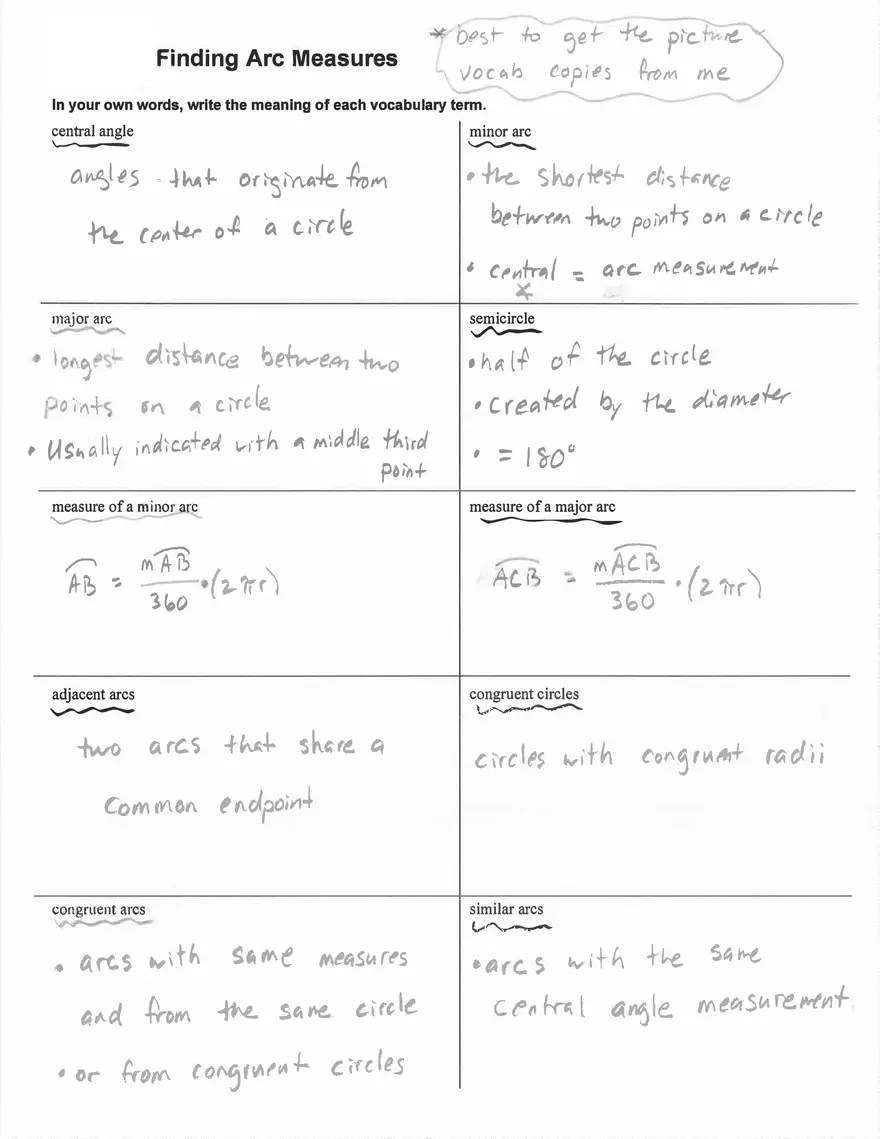 * best to get the picture
Finding Arc Measures
vocab copies from me
In your own words, write the meaning of each vocabulary term.
central angle
angles that originate from
the center of a circle
minor arc
• the shortest distance
between two points on a circle
• central = arc measurement
∡
major arc
• longest distance between two
points on a circle
• Usually indicated with a middle third
point
semicircle
• half of the circle
• created by the diameter
• = 180°
measure of a minor arc
AB = mAB/360 • (2πr)
measure of a major arc
ACB = mACB/360 • (2πr)
adjacent arcs
two arcs that share a
common endpoint
congruent circles
circles with congruent radii
congruent arcs
• arcs with same measures
and from the same circle
• or from congruent circles
similar arcs
• arcs with the same
central angle measurement.